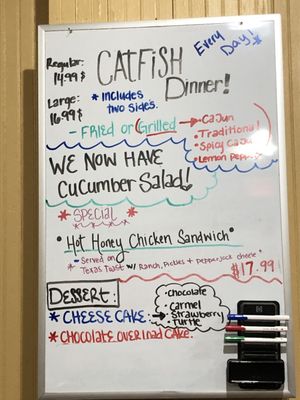 Regular:
14.99$
CATFISH
Dinner!
Every Day
Large:
16.99$
* Includes
two sides.
- FRIED or Grilled
Cajun
Traditional
Spicy Cajun
Lemon Pepper
WE NOW HAVE
CUCUMBER SALAD!
* SPECIAL *
"Hot Honey Chicken Sandwich"
- Served on
Texas Toast w/ Ranch, Pickles + Pepperjack cheese
$17.99
DESSERT:
* CHEESE CAKE:
chocolate
Carmel
Strawberry
Turtle
* CHOCOLATE OVERLOAD CAKE.